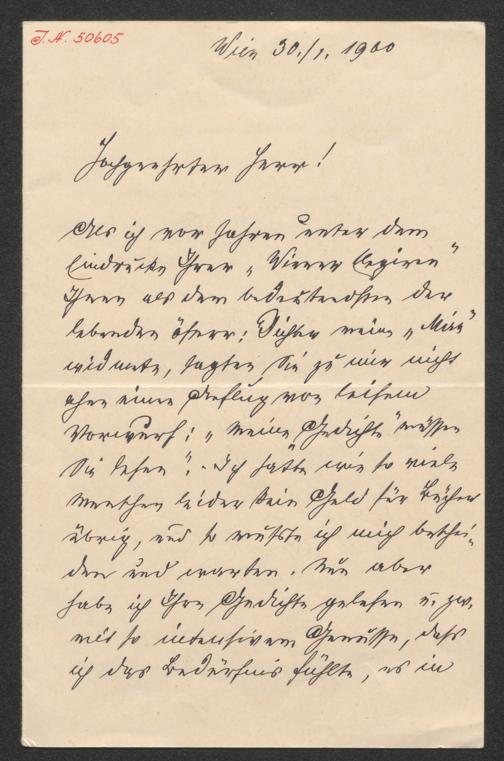 J.N. 50605
Wien 30./1. 1900
Hochgeehrter Herr!
Als ich vor Jahren unter dem
Eindrucke Ihrer „Wiener Elegien"
Ihnen als dem bedeutendsten der
lebenden österr: Dichter meine „Mira"
widmete, sagten Sie zu mir nicht
ohne einen Anflug von leisem
Vorwurf: „Meine Gedichte" müssen
Sie lesen". - Ich hatte wie so viele
Menschen leider kein Geld für Bücher
übrig, und so mußte ich mich beschei-
den und warten. Nun aber
habe ich Ihre Gedichte gelesen u. zw.
mit so intensivem Genusse, dass
ich das Bedürfnis fühlte, es in